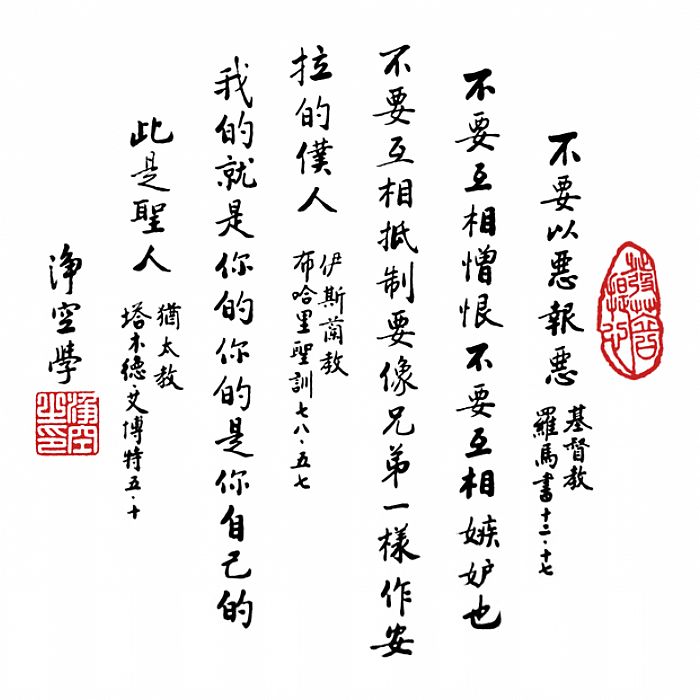 不要以惡報惡
基督教
羅馬書十二·十七
不要互相憎恨不要互相嫉妒也
不要互相抵制要像兄弟一樣作安
拉的僕人
伊斯蘭教
布哈里聖訓七八·五七
我的就是你的你的是你自己的
此是聖人
猶太教
塔木德·艾博特五·十
淨空學
淨空之印